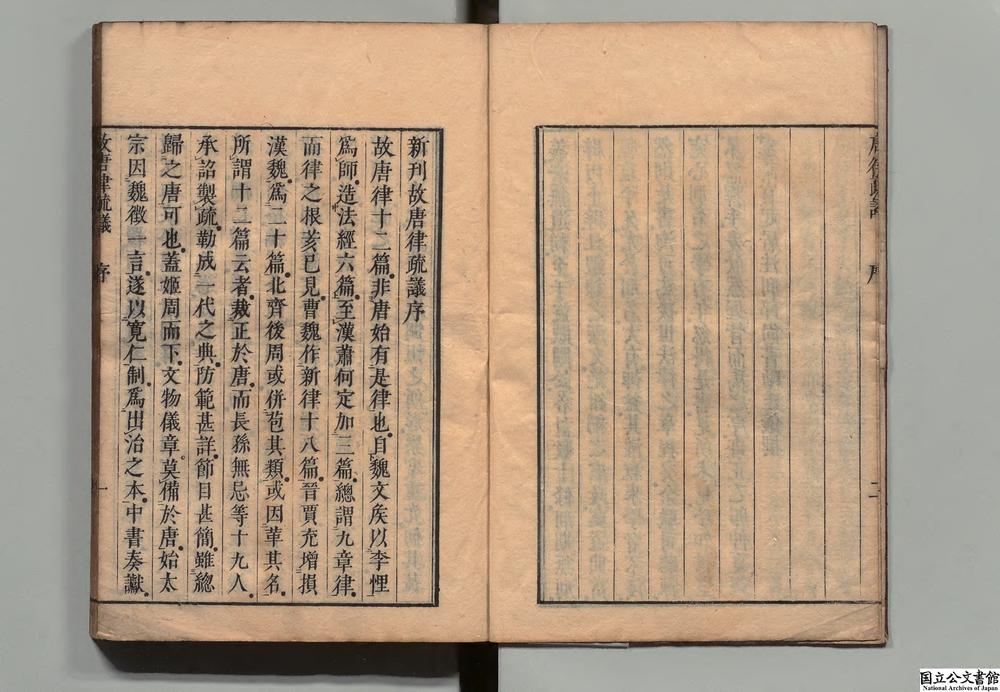 唐律疏議 序 二
新刊故唐律疏議序
故唐律十二篇非唐始有是律也自魏文矦以李悝
爲師造法經六篇至漢蕭何定加三篇總謂九章律
而律之根荄已見曹魏作新律十八篇晉賈充增損
漢魏爲二十篇北齊後周或併苞其類或因革其名
所謂十二篇云者裁正於唐而長孫無忌等十九人
承詔製疏勒成一代之典防範甚詳節目甚簡雖緫
歸之唐可也蓋姬周而下文物儀章莫備於唐始太
宗因魏徵一言遂以寬仁制爲出治之本中書奏讞
故唐律疏議 序 一
国立公文書館
National Archives of Japan